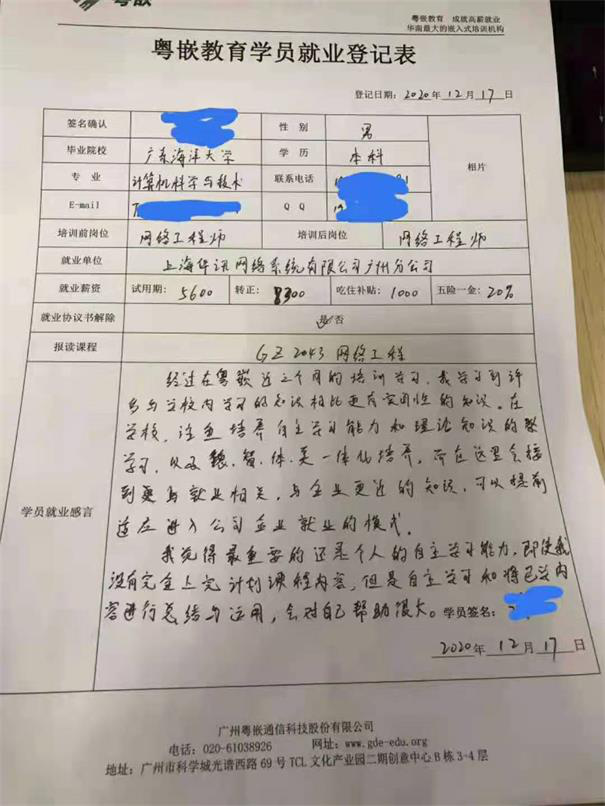 粤嵌
粤嵌教育 成就高薪就业
华南最大的嵌入式培训机构
粤嵌教育学员就业登记表
登记日期：2020年12月17日
签名确认 性 别 男
毕业院校 广东海洋大学 学 历 本科 相片
专 业 计算机科学与技术 联系电话
E-mail Q Q
培训前岗位 网络工程师 培训后岗位 网络工程师
就业单位 上海华讯网络系统有限公司广州分公司
就业薪资 试用期：5600 转正：8300 吃住补贴：1000 五险一金：20%
就业协议书解除 是/否
报读课程 GZ2043 网络工程
经过在粤嵌近三个月的培训学习，我学习到许
多与学校内学习的知识相比更有实用性的知识。在
学校，注重培养自主学习能力和理论知识的
学习，以及德、智、体、美一体化培养，而在这里会接
到更与就业相关，与企业更近的知识，可以提前
适应进入公司企业就业的模式。
学员就业感言
我觉得最重要的还是个人的自主学习能力，即使我
没有完全上完计划课程内容，但是自主学习和将已学内
容进行总结与运用，会对自己帮助很大。学员签名：
2020年12月17日
广州粤嵌通信科技股份有限公司
电话：020-61038926 网址：www.gde-edu.org
地址：广州市科学城光谱西路69号TCL文化产业园二期创意中心B栋3-4层